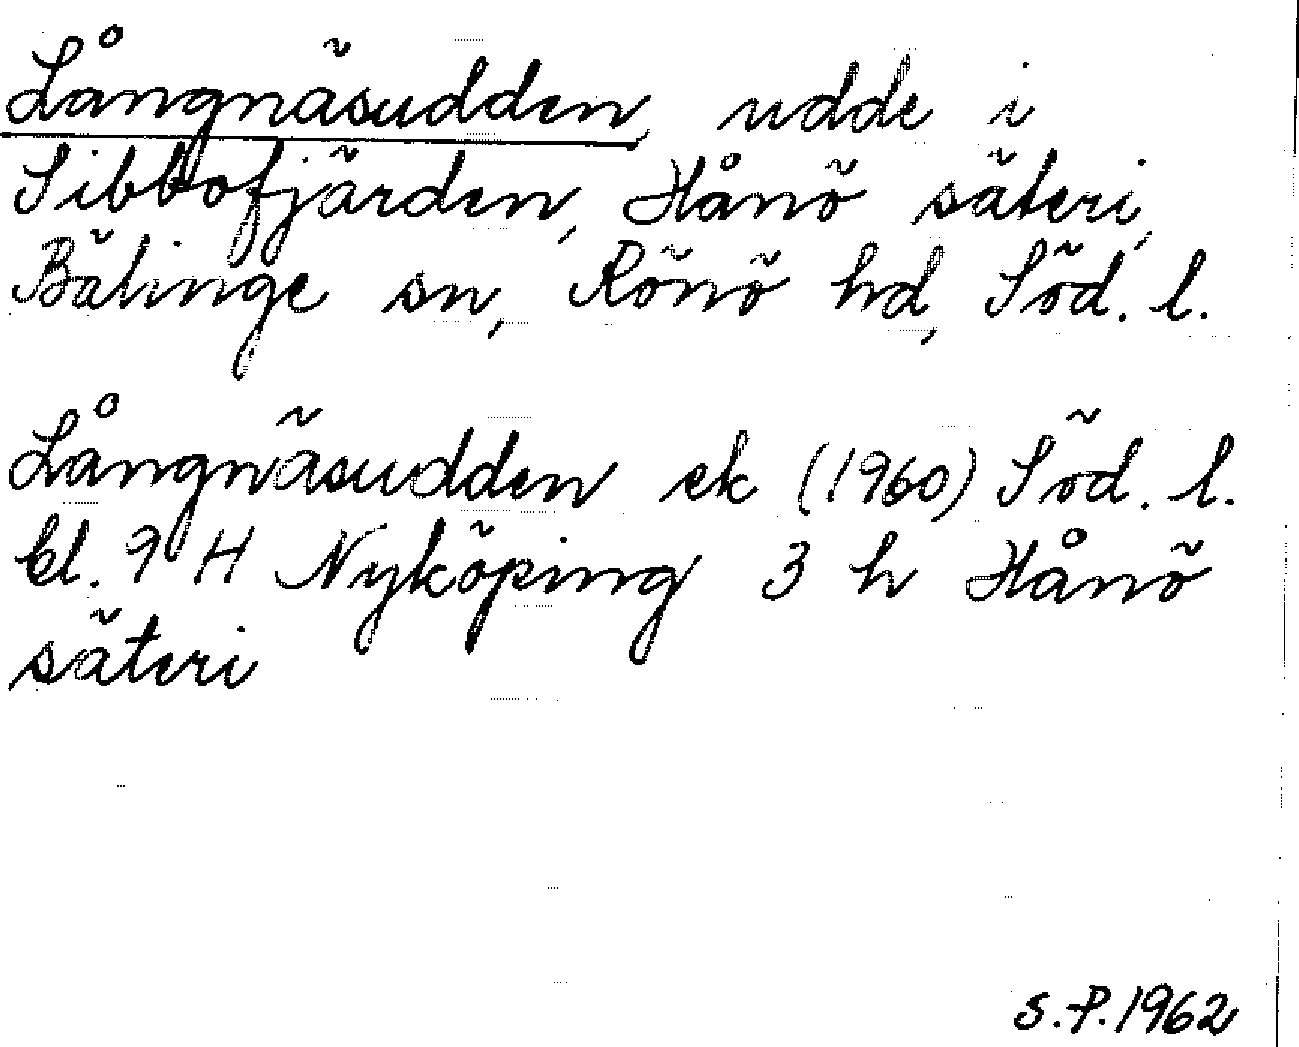 Långnäsudden, udde i
Sibbofjärden, Hånö säteri,
Bälinge sn, Rönö hd, Söd. l.
Långnäsudden ek (1960) Söd. l.
bl. 9 H Nyköping 3 h Hånö
säteri
S.P. 1962